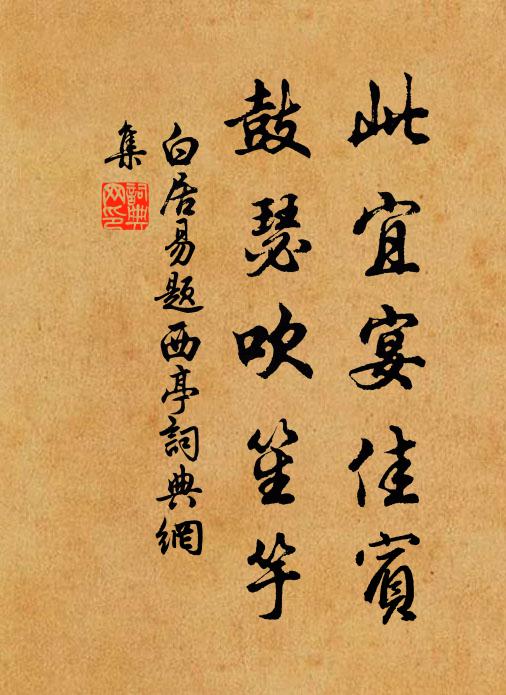 此宜宴佳賓
鼓瑟吹笙竽
白居易題西亭詞典網
集
詞典
网印